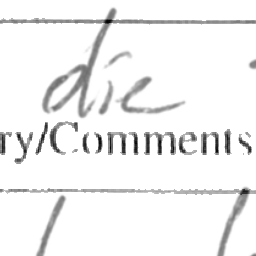 die
ry/Comments